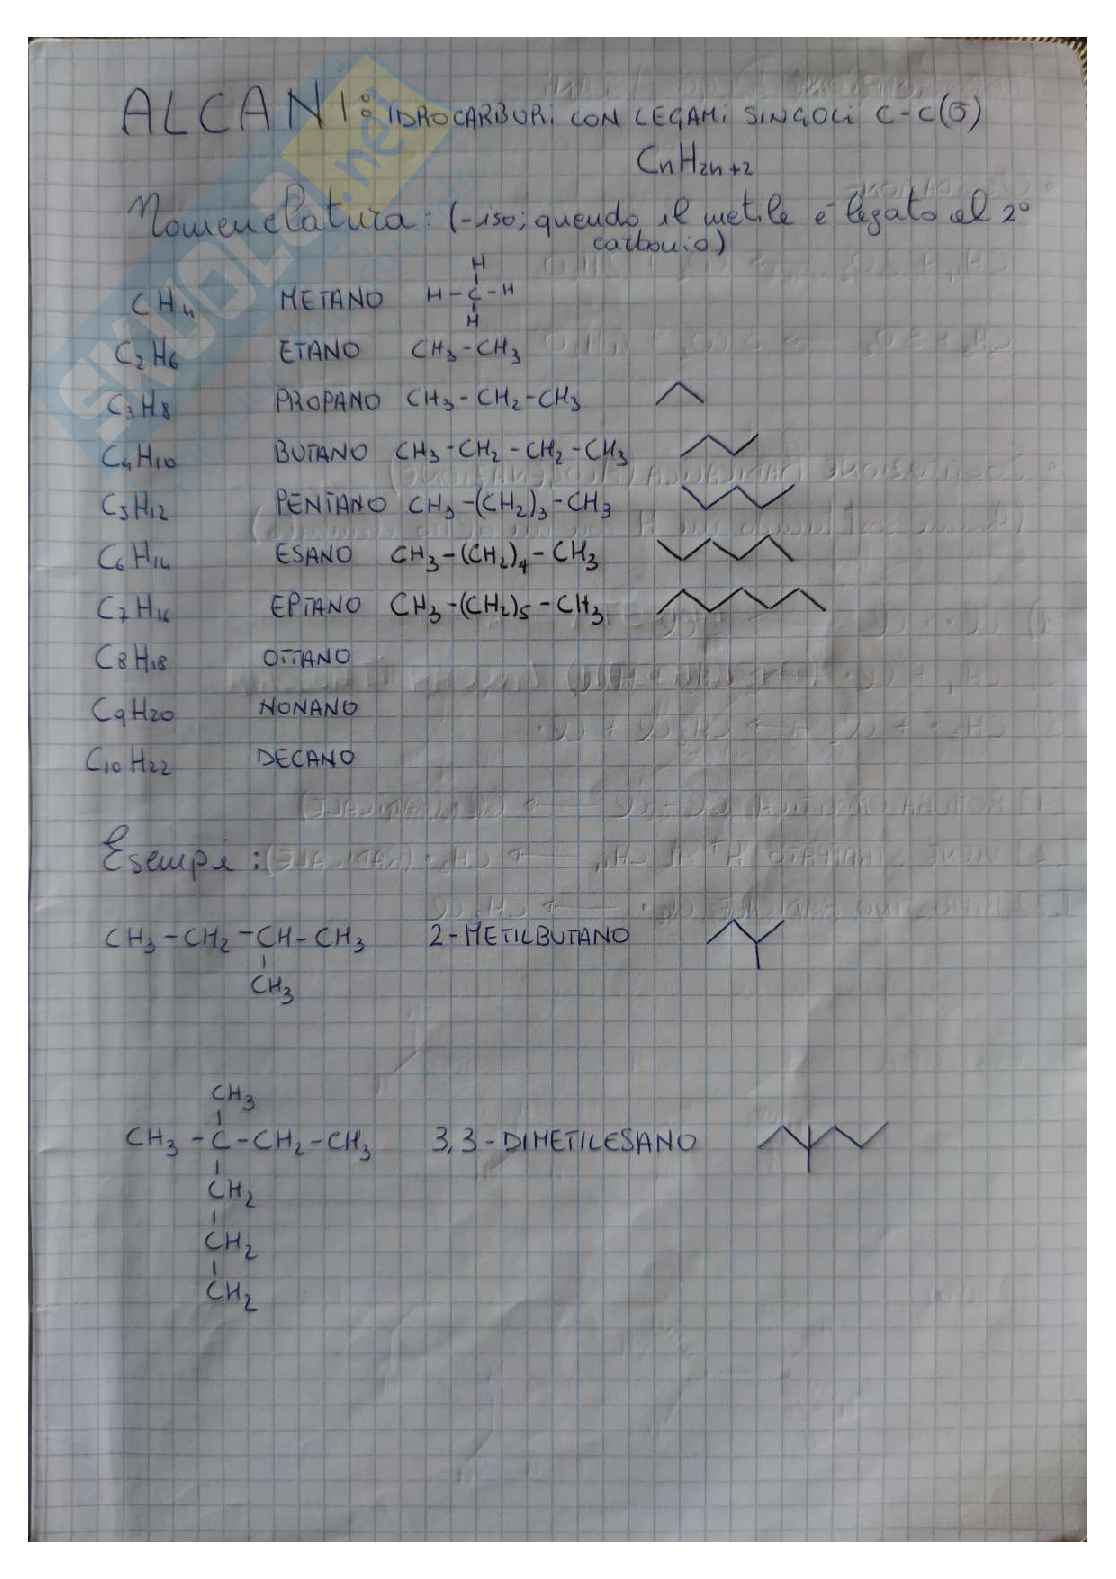 ALCANI: IDROCARBURI CON LEGAMI SINGOLI C-C(σ)
CnH2n+2
Nomenclatura: (-iso; quando il metile è legato al 2°
carbonio)
CH4 METANO H-C-H H H
C2H6 ETANO CH3-CH3
C3H8 PROPANO CH3-CH2-CH3
C4H10 BUTANO CH3-CH2-CH2-CH3
C5H12 PENTANO CH3-(CH2)3-CH3
C6H14 ESANO CH3-(CH2)4-CH3
C7H16 EPTANO CH3-(CH2)5-CH3
C8H18 OTTANO
C9H20 NONANO
C10H22 DECANO
Esempi:
CH3-CH2-CH-CH3 2-METILBUTANO
CH3
CH3
CH3-C-CH2-CH3 3,3-DIMETILESANO
CH2
CH2
CH2
SKUOLA.net